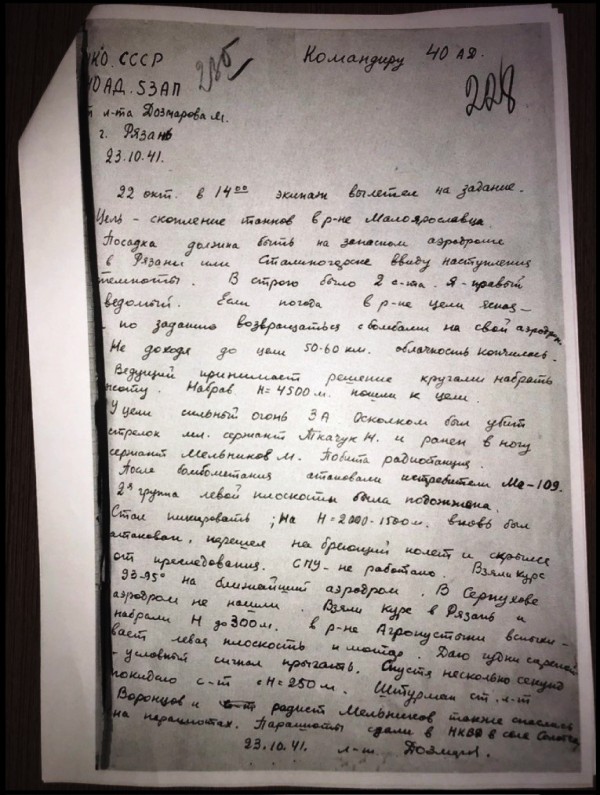 НКО. СССР
Командиру 40 АД.
236
228
40 АД. 53 АП
От л-та Дозмарова М.
г. Рязань
23.10.41.
22 окт. в 14 00 экипаж вылетел на задание.
Цель - скопление танков в р-не Малоярославца.
Посадка должна быть на запасном аэродроме
в Рязани или Сталиногорске ввиду наступления
темноты. В строю было 2 с-та. Я - правый
ведомый. Если погода в р-не цели ясная -
- по заданию возвращаться с бомбами на свой аэродром.
Не доходя до цели 50-60 км. облачность кончилась.
Ведущий принимает решение кругами набрать
высоту. Набрав H = 4500 м. пошли к цели.
У цели сильный огонь ЗА Осколком был убит
стрелок мл. сержант Ткачук Н. и ранен в ногу
сержант Мельников М. Побита радиостанция.
После бомбометания атаковали истребители Ме-109.
2я группа левой плоскости была подожжена.
Стал пикировать; на H = 2000-1500 м. вновь был
атакован, перешел на бреющий полет и скрылся
от преследования. СПУ - не работало. Взяли курс
93-95° на ближайший аэродром. В Серпухове
аэродром не нашли. Взяли курс в Рязань и
набрали H до 300 м. в р-не Агропустыни вспыхи-
вает левая плоскость и мотор. Даю гудки сиреной
- условный сигнал прыгать. Спустя несколько секунд
покидаю с-т с H = 250 м. Штурман ст. л-т
Воронцов и радист Мельников также спаслись
на парашютах. Парашюты сдали в НКВД в селе Солотча
23.10.41. л-т Дозмаров.